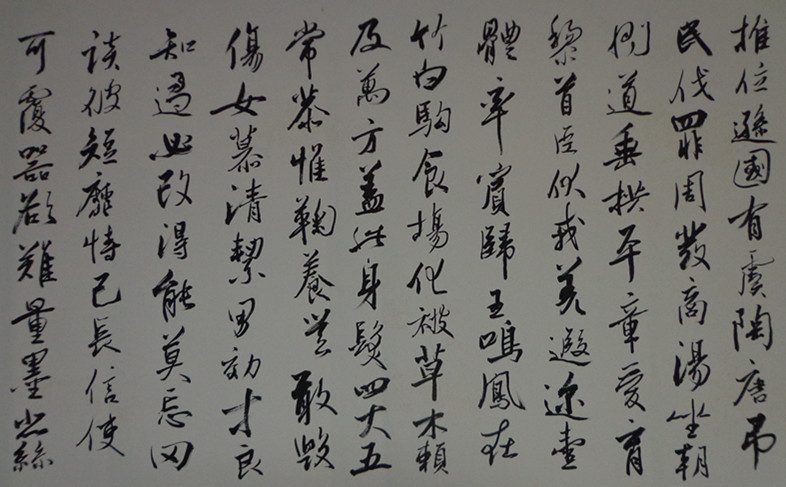 推位遜國有虞陶唐弔
民伐罪周發商湯坐朝
問道垂拱平章愛育
黎首臣伏戎羌遐迩壹
體率賓歸王鳴鳳在
竹白駒食場化被草木賴
及萬方蓋此身髮四大五
常恭惟鞠養豈敢毀
傷女慕清絜男効才良
知過必改得能莫忘罔
談彼短靡恃己長信使
可覆器欲難量墨悲絲